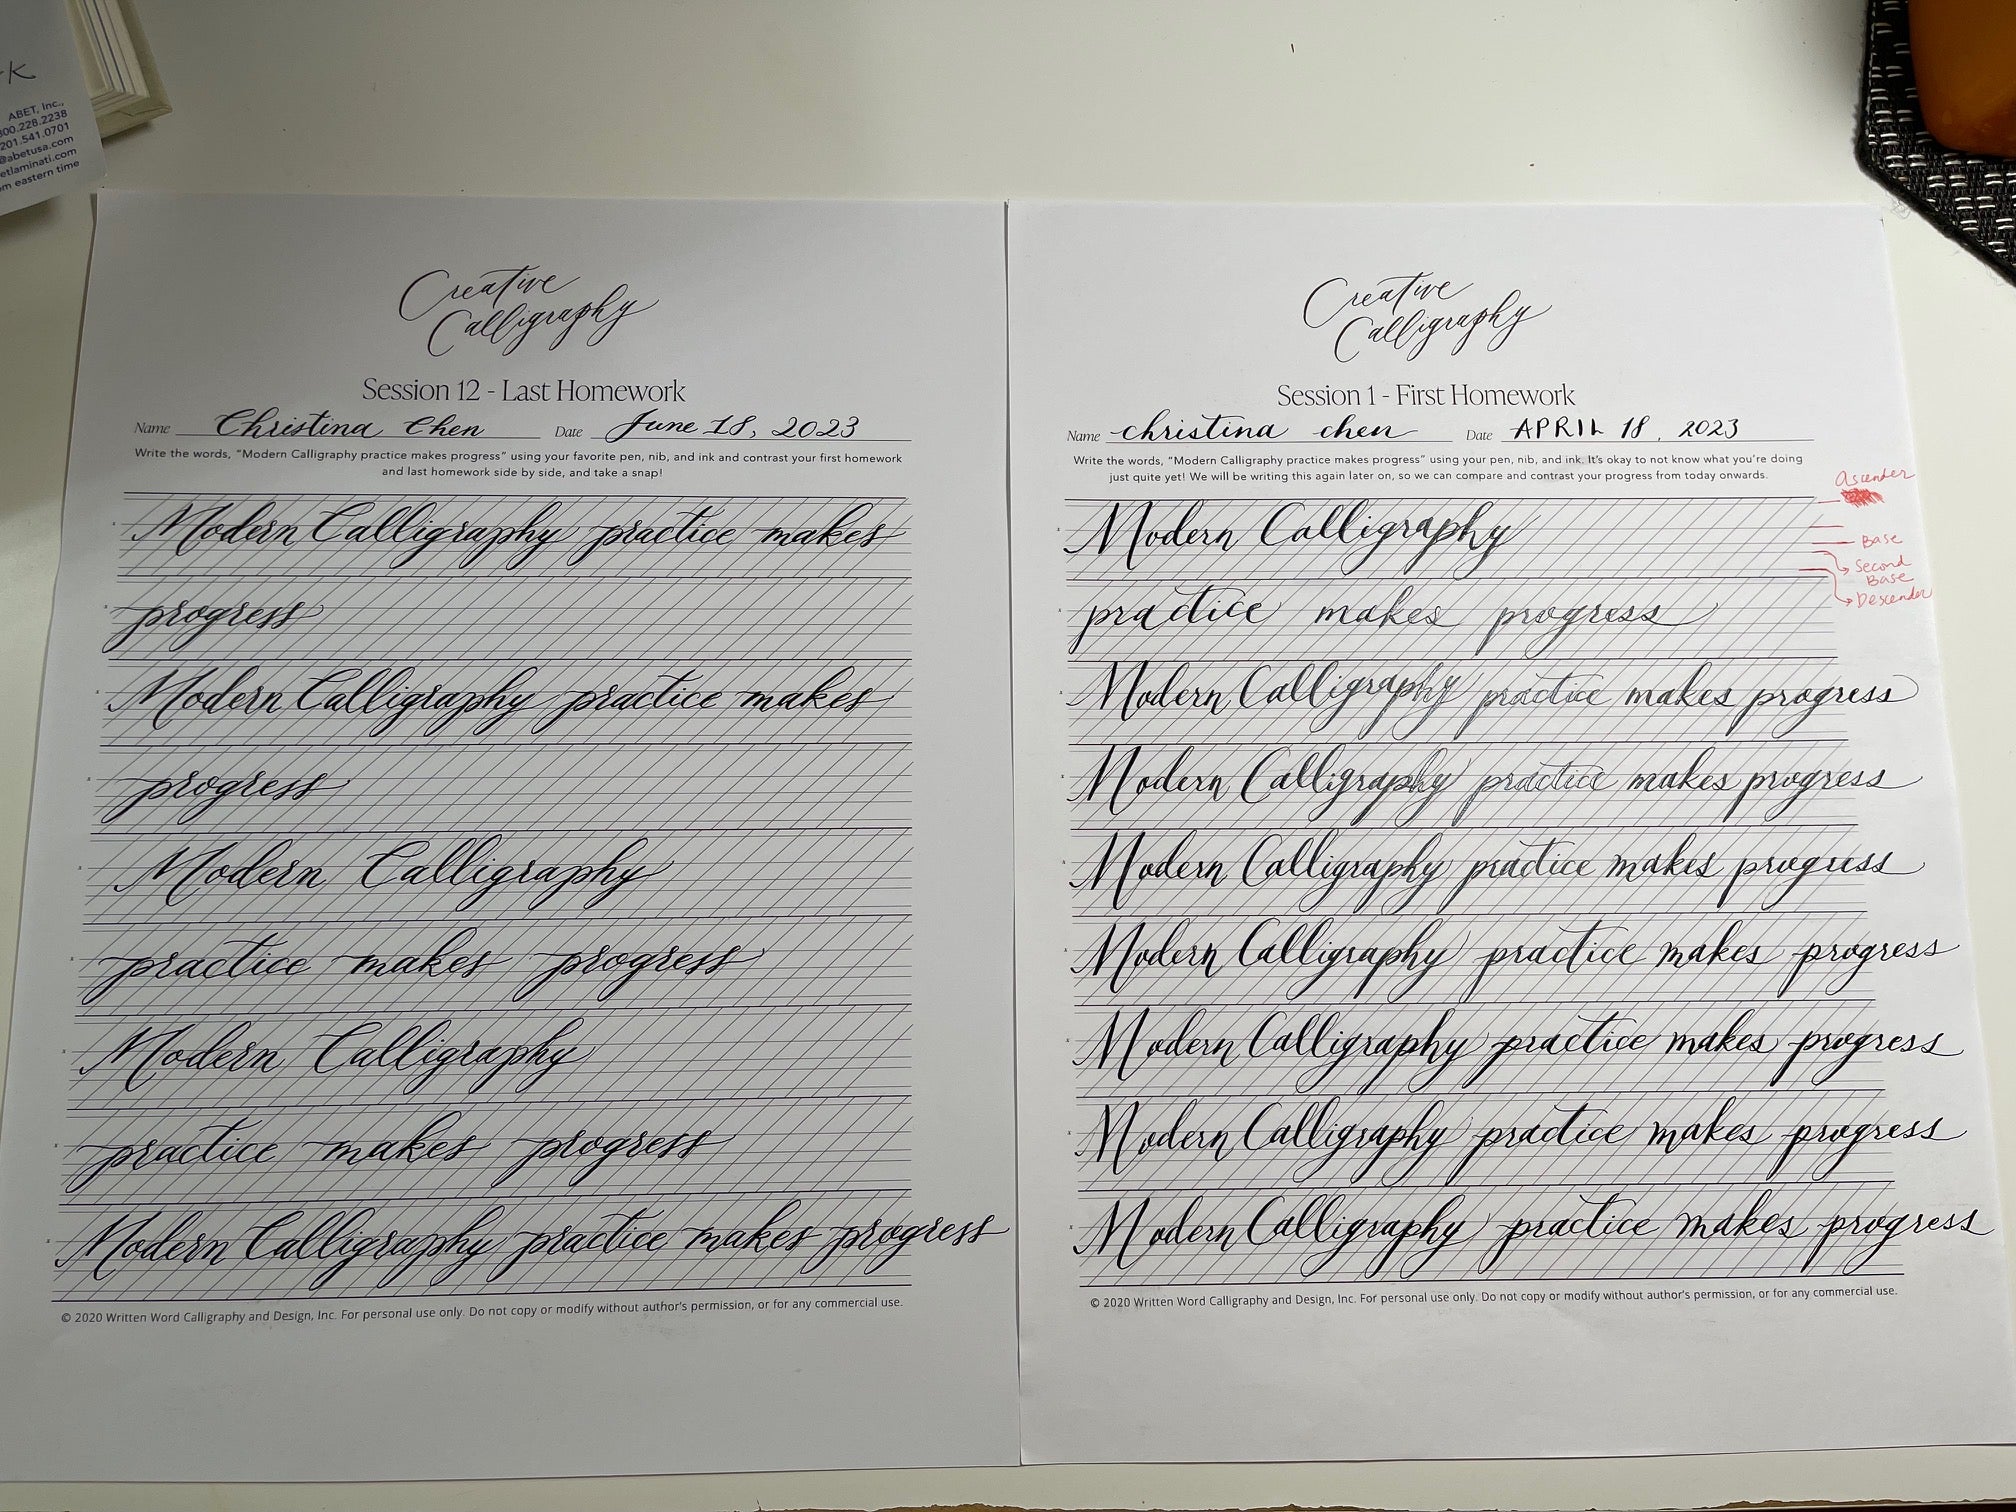 ABET, Inc.,
800.228.2238
201.541.0701
@abetusa.com
etlaminati.com
eastern time
Creative
Calligraphy
Session 12 - Last Homework
Name Christina Chen Date June 18, 2023
Write the words, "Modern Calligraphy practice makes progress" using your favorite pen, nib, and ink and contrast your first homework
and last homework side by side, and take a snap!
Modern Calligraphy practice makes
progress
Modern Calligraphy practice makes
progress
Modern Calligraphy
practice makes progress
Modern Calligraphy
practice makes progress
Modern Calligraphy practice makes progress
© 2020 Written Word Calligraphy and Design, Inc. For personal use only. Do not copy or modify without author's permission, or for any commercial use.
Creative
Calligraphy
Session 1 - First Homework
Name christina chen Date APRIL 18, 2023
Write the words, "Modern Calligraphy practice makes progress" using your pen, nib, and ink. It's okay to not know what you're doing
just quite yet! We will be writing this again later on, so we can compare and contrast your progress from today onwards.
Ascender
Base
Second
Base
Descender
Modern Calligraphy
practice makes progress
Modern Calligraphy practice makes progress
Modern Calligraphy practice makes progress
Modern Calligraphy practice makes progress
Modern Calligraphy practice makes progress
Modern Calligraphy practice makes progress
Modern Calligraphy practice makes progress
Modern Calligraphy practice makes progress
© 2020 Written Word Calligraphy and Design, Inc. For personal use only. Do not copy or modify without author's permission, or for any commercial use.